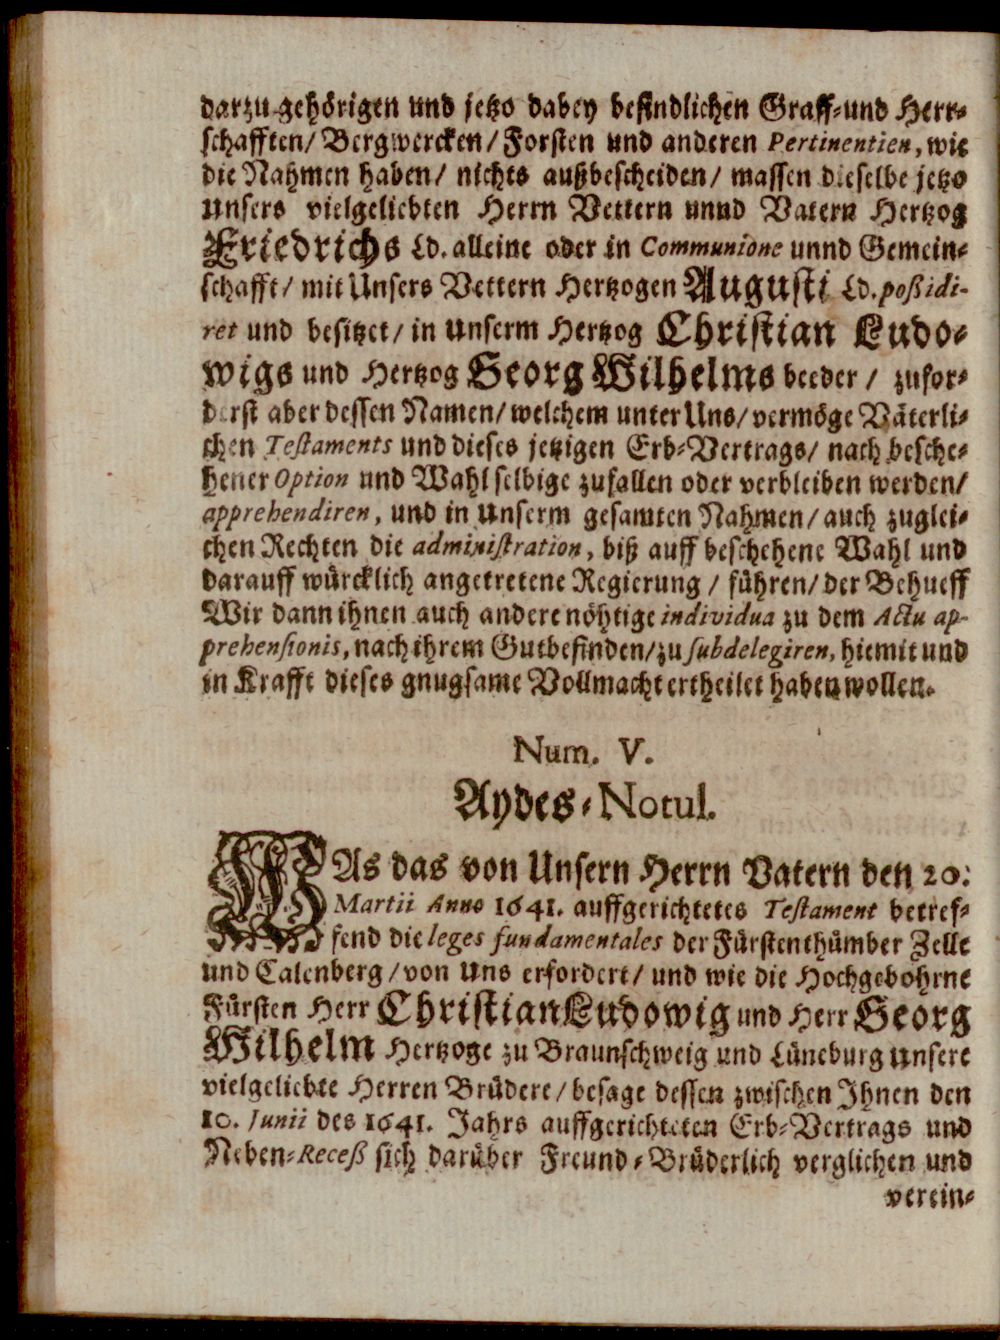 darzu gehörigen und jetzo dabey befindlichen Graff-und Herr-
schafften/ Bergwercken/ Forsten und anderen Pertinentien, wie
die Nahmen haben/ nichts außbescheiden/ massen dieselbe jetzo
Unsers vielgeliebten Herrn Vettern unnd Vatern Hertzog
Friedrichs Ld. alleine oder in Communione unnd Gemein-
schafft/ mit Unsers Vettern Hertzogen Augusti Ld. poßidi-
ret und besitzet/ in Unserm Hertzog Christian Ludo-
wigs und Hertzog Georg Wilhelms beeder / zufor-
derst aber dessen Namen/ welchem unter Uns/ vermöge Väterli-
chen Testaments und dieses jetzigen Erb-Vertrags/ nach besche-
hener Option und Wahl selbige zufallen oder verbleiben werden/
apprehendiren, und in Unserm gesamten Nahmen/ auch zuglei-
chen Rechten die administration, biß auff beschehene Wahl und
darauff würcklich angetretene Regierung / führen/ der Behueff
Wir dann ihnen auch andere nöhtige individua zu dem Actu ap-
prehensionis, nach ihrem Gutbefinden/ zu subdelegiren, hiemit und
in Krafft dieses gnugsame Vollmacht ertheilet haben wollen.
Num. V.
Aydes-Notul.
WAs das von Unsern Herrn Vatern den 20.
Martii Anno 1641. auffgerichtetes Testament betref-
fend die leges fundamentales der Fürstenthümber Zelle
und Calenberg/ von Uns erfordert/ und wie die Hochgebohrne
Fürsten Herr Christian Ludowig und Herr Georg
Wilhelm Hertzoge zu Braunschweig und Lüneburg Unsere
vielgeliebte Herren Brüdere/ besage dessen zwischen Ihnen den
10. Junii des 1641. Jahrs auffgerichteten Erb-Vertrags und
Neben-Receß sich darüber Freund-Brüderlich verglichen und
verein-